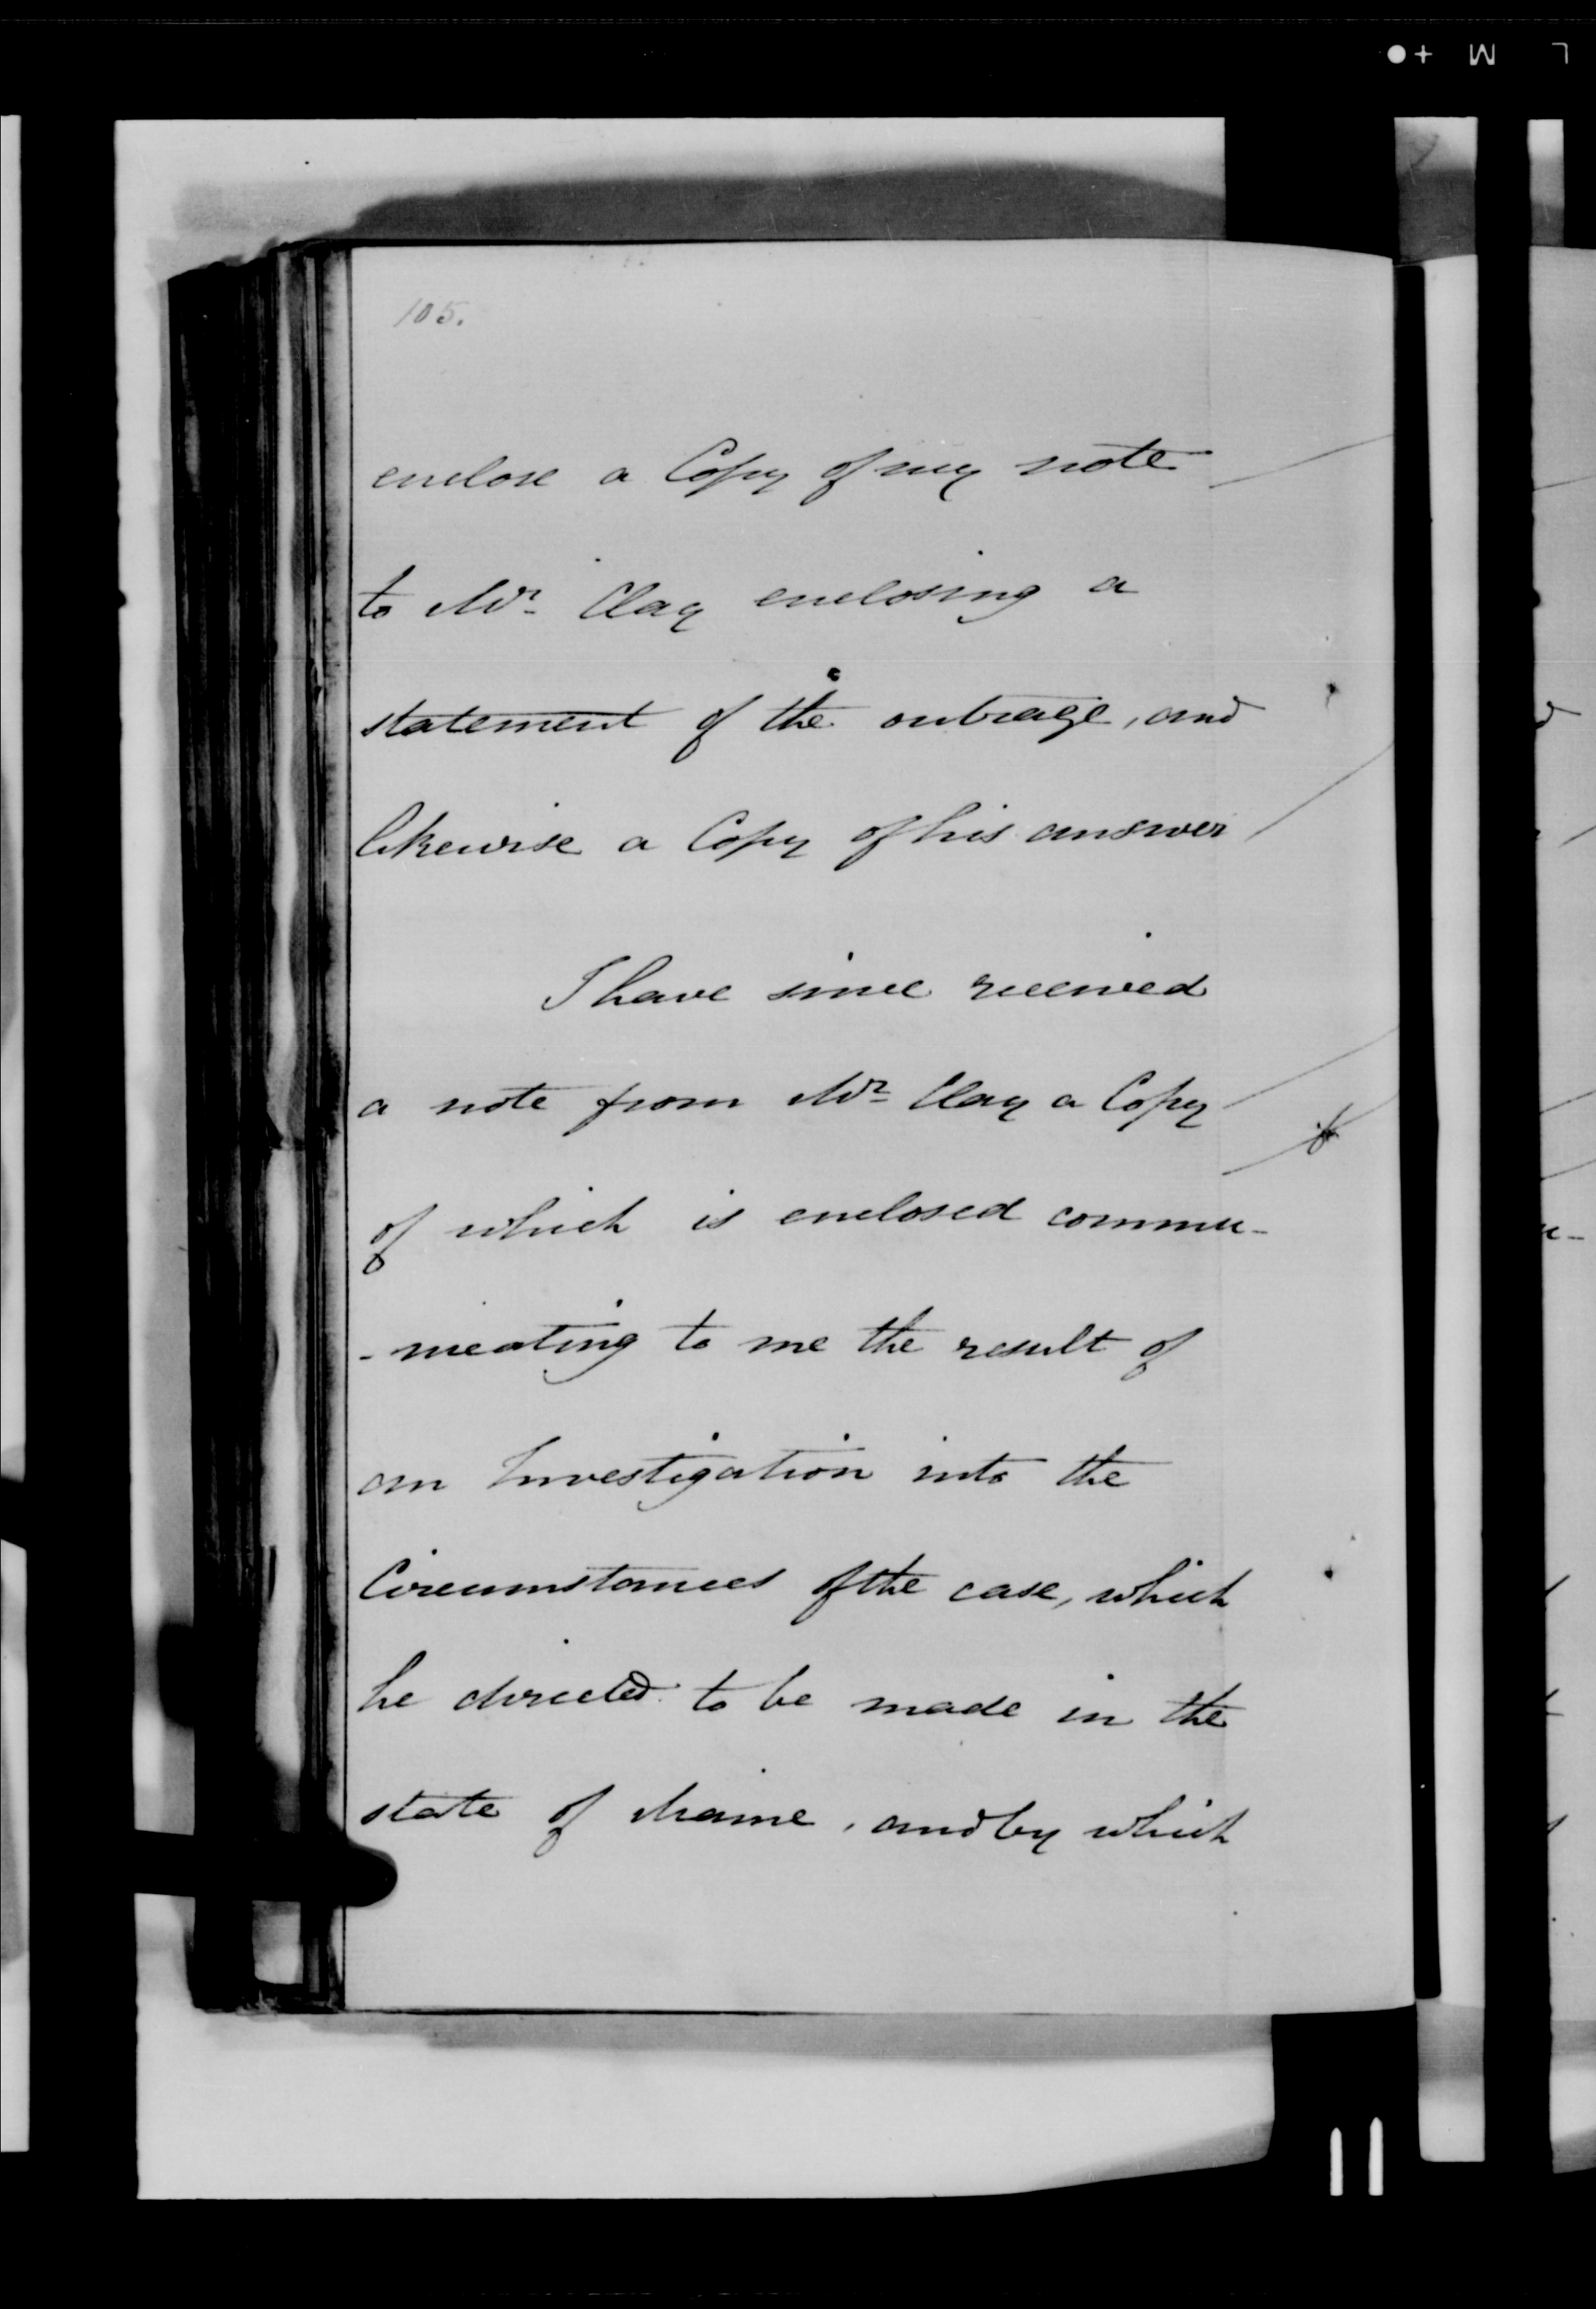 105.
enclose a Copy of my note
to Mr. Clay enclosing a
statement of the outrage, and
likewise a Copy of his answer
I have since received
a note from Mr. Clay a Copy
of which is enclosed commu-
-nicating to me the result of
an Investigation into the
Circumstances of the case, which
he directed to be made in the
state of Maine, and by which